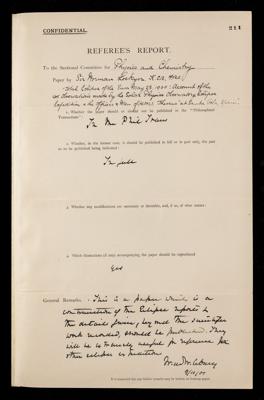 CONFIDENTIAL.
211
REFEREE'S REPORT.
To the Sectional Committee for Physics and Chemistry
Paper by Sir Norman Lockyer, K.C.B., F.R.S.
"Total Eclipse of the Sun, May 28, 1900: Account of the
observations made by the Solar Physics Observatory Eclipse
Expedition & the Officers & Men of H.M.S. 'Theseus' at Santa Pola, Spain."
1. Whether the paper should or should not be published in the "Philosophical
Transactions":
In the Phil Trans
2. Whether, in the former case, it should be published in full or in part only, the part
so to be published being indicated:
In full
3. Whether any modifications are necessary or desirable, and, if so, of what nature:
4. Which illustrations (if any) accompanying the paper should be reproduced
Yes
General Remarks. This is a paper which is a
continuation of the Eclipse reports in
the detailed form, and the
work recorded, should be published. They
will be extremely useful for reference for
other eclipse expeditions
W. de W. Abney